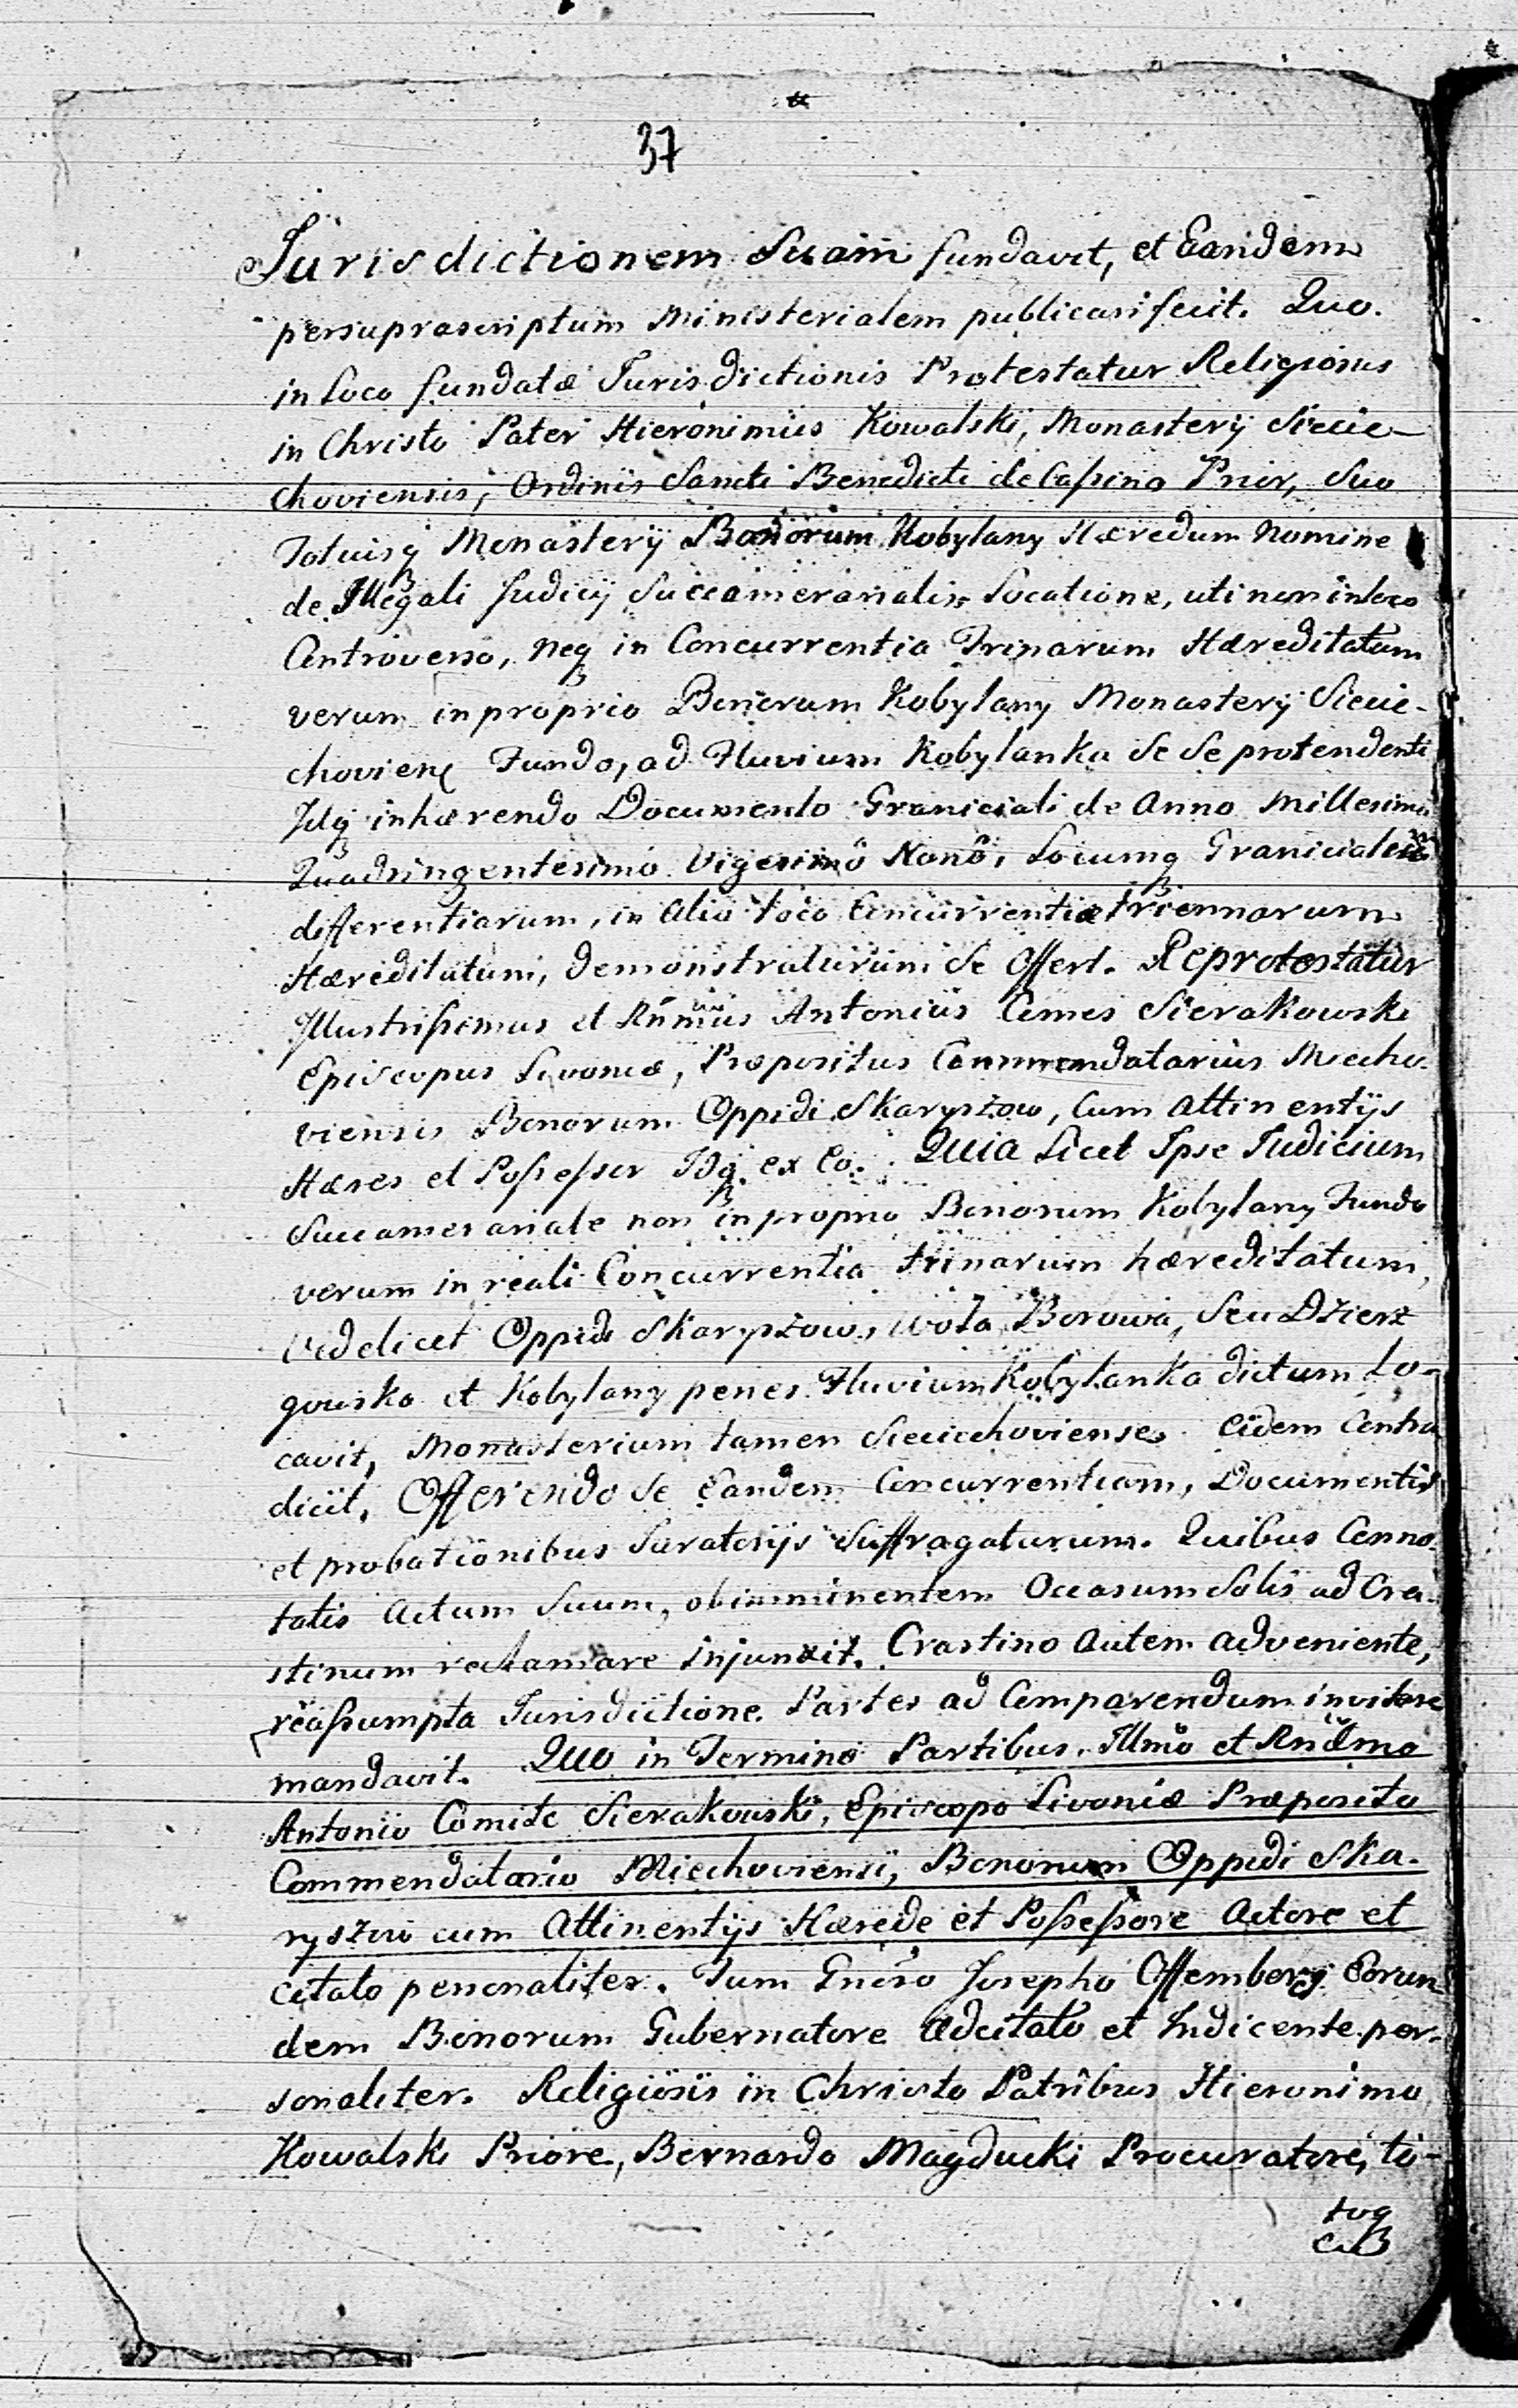 37
Jurisdictionem Suam fundavit, et Eandem
persuprascriptum Ministerialem publicari fecit. Quo
in Loco fundatæ Jurisdictionis Protestatur Religiosus
in Christo Pater Hieronimus Kowalski, Monasterÿ Siecie-
choviensis, Ordinis Sancti Benedicti de Cassino Prior, Suo
Totuisq Monasterÿ Bonorum Kobylany Hæredum Nomine
de Illegali Judicÿ Succamerarialis Locatione, uti non in loco
Controverso, neq in Concurrentia Trinarum Hæreditatum
verum in proprio Bonorum Kobylany Monasterÿ Siecie-
choviens Fundo, ad Fluvium Kobylanka se se protendenti
Idq inhærendo Documento Graniciali de Anno Millesimo
Quadringentesimo Vigesimo Nono, Locumq Granicialium
differentiarum, in alio loco Concurrentiæ triennarum
Hæreditatum, demonstraturum se Offert. Reprotestatur
Illustrissimus et Rñmus Antonius Comes Sierakowski
Episcopus Livoniæ, Præpositus Commendatarius Miecho-
viensis Bonorum Oppidi Skaryszow, cum attinentÿs
Hæres et Possessor Idq ex Eo. Quia Licet Ipse Judicium
Succamerariale non in proprio Bonorum Kobylany Fundo
verum in reali Concurrentia trinarum hæreditatum,
videlicet Oppidi Skaryszow, Wola Borowa, Seu Dzierz
gowska et Kobylany penes Fluvium Kobylanka dictum Lo-
cavit, Monasterium tamen Sieciechoviense Eidem Contra
dicit, Offerendo se Eandem Concurrentiam, Documentis
et probationibus Juratorÿs Suffragaturum. Quibus Conno-
tatis Actum Suum, ob imminentem Occasum Solis ad Cra-
stinum reclamare injunxit. Crastino Autem adveniente,
reassumpta Jurisdictione Partes ad Comparendum invitare
mandavit. Quo in Termino Partibus. Illmo et Rndmo
Antonio Comite Sierakowski, Episcopo Livoniæ Præposito
Commendatario Miechoviensi, Bonorum Oppidi Ska-
ryszow cum Attinentÿs Hærede et Possessore Actore et
citato personaliter. Tum Gnoso Josepho Offemberg Eorun
dem Bonorum Gubernatore adcitato et Indicente per-
sonaliter. Religiosis in Christo Patribus Hieronimo
Kowalski Priore, Bernardo Magducki Procuratore, to-
toq